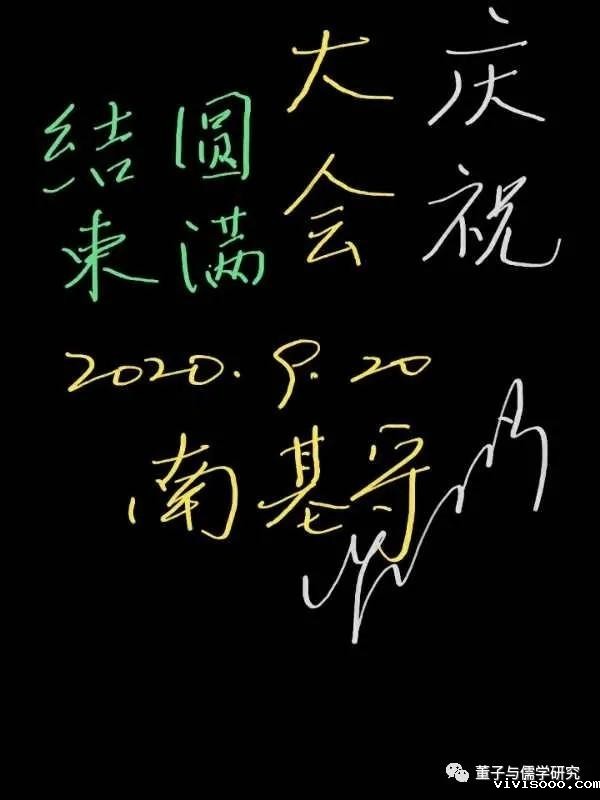 庆祝
大会
圆满
結束
2020.9.20
南基守
董子与儒学研究
vivisooo.com